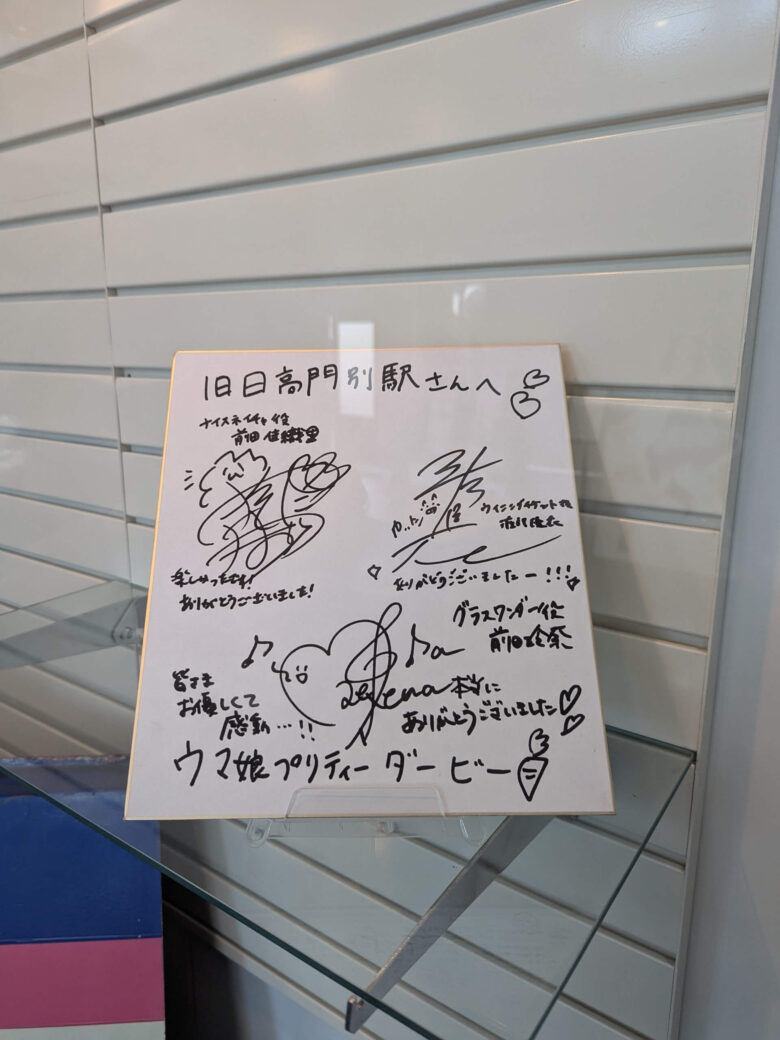 旧日高門別駅さんへ
ナイスネイチャ役
前田佳織里
楽しかったです!
ありがとうございました!
やったー
ウイニングチケット役
渡部優衣
ありがとうございましたー!!!
グラスワンダー役
前田玲奈
皆さま
お優しくて
感動…!!
本当に
ありがとうございました
ウマ娘プリティーダービー